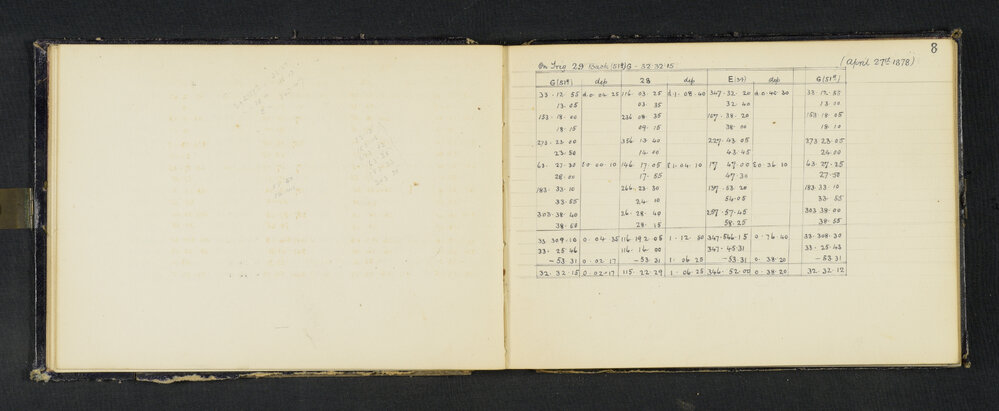 8
On Trig 29 Back (51st) G - 32.32.15 (April 27th 1878)
G (51st) dep 28 dep E (34) dep G (51st)
33.12.55 d.0.04.25 116.03.25 d.1.08.40 347.32.20 d.0.40.20 33.12.55
13.05 03.35 32.40 13.10
153.18.00 236.08.35 107.38.20 153.18.05
18.15 09.15 38.00 18.10
273.23.00 356.13.40 227.43.05 273.23.05
23.50 14.00 43.45 24.00
63.27.30 0.00.10 146.17.05 1.04.10 17 47.00 0.36.10 63.27.25
28.00 17.55 47.30 27.50
183.33.10 266.23.30 137.53.20 183.33.10
33.55 24.10 54.05 33.55
303.38.40 26.28.40 257.57.45 303.38.00
38.50 28.15 58.25 38.55
33.309.10 0.04.35 116.192.05 1.12.50 347.546.15 0.76.40 33.308.30
33.25.46 116.16.00 347.45.31 33.25.43
-53.31 0.02.17 -53.31 1.06.25 -53.31 0.38.20 -53.31
32.32.15 0.02.17 115.22.29 1.06.25 346.52.00 0.38.20 32.32.12